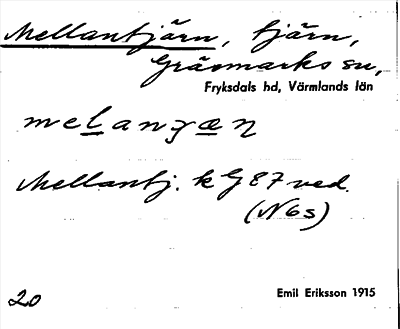 Mellantjärn, tjärn,
Gräsmarks sn,
Fryksdals hd, Värmlands län
Mellantj. k G 87 ved.
(N6s)
20
Emil Eriksson 1915